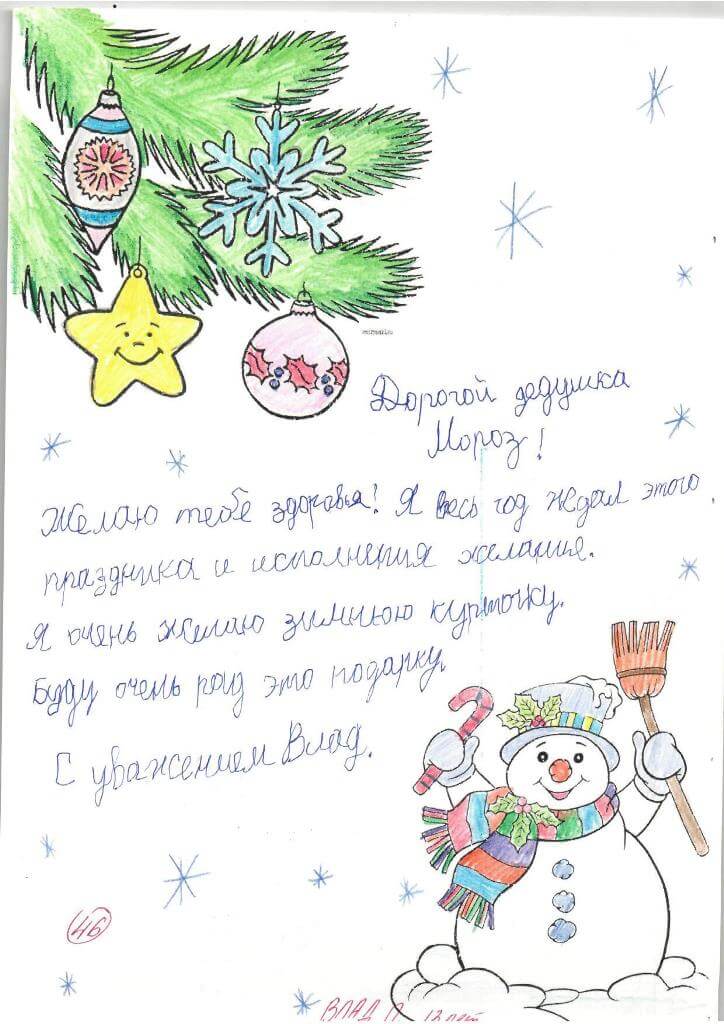 Дорогой дедушка
Мороз!
Желаю тебе здоровья! Я весь год ждал этого
праздника и исполнения желанье.
Я очень желаю зимнюю курточку.
Буду очень рад это подарку.
С уважением Влад.
46
ВЛАД П 12 лет